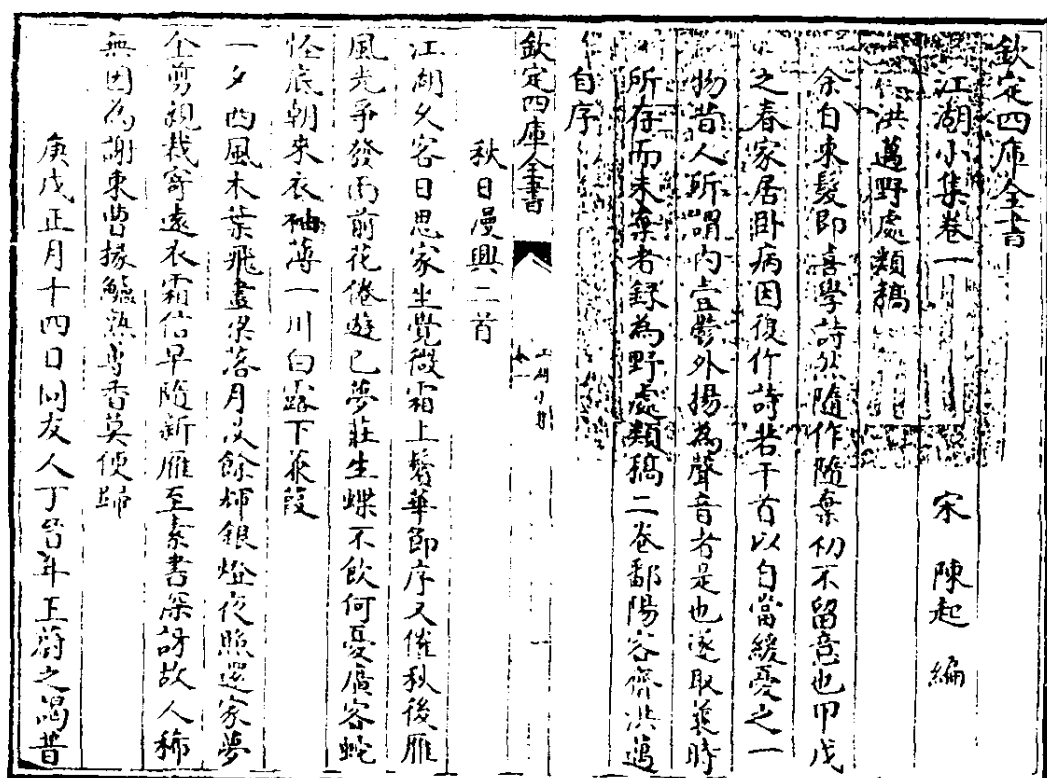 欽定四庫全書
江湖小集卷一
宋 陳起 編
洪邁野處類稿
余自束髮即喜學詩然隨作隨棄初不留意也甲戌
之春家居卧病因復作詩若干首以自當緩憂之一
物昔人所謂内壹鬱外揚為聲音者是也遂取舊時
所存而未棄者録為野處類稿二卷鄱陽容齋洪邁
自序
欽定四庫全書
江湖小集
卷一
一
秋日漫興二首
江湖久客日思家坐覺微霜上鬢華節序又催秋後雁
風光爭發雨前花倦遊已夢莊生蝶不飲何憂廣客蛇
怪底朝來衣袖薄一川白露下蒹葭
一夕西風木葉飛畫梁落月以餘輝銀燈夜照還家夢
金剪親裁寄遠衣霜信早隨新雁至素書深訝故人稀
無因為謝東曹掾鱸熟蓴香莫便歸
庚戌正月十四日同友人丁晉年王蔚之謁昔